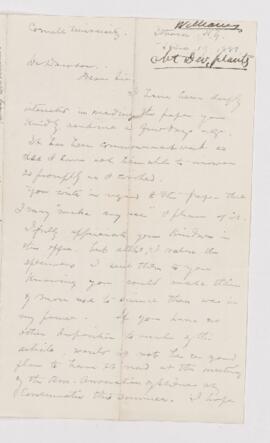 Williams
Cornell University, Ithaca, N.Y.
1888
Dev. plants
Dr Dawson,
Dear Sir,
I have been deeply
interested in reading the paper you
kindly send me a few days ago.
It has been commencement week so
that I have not been able to answer
as promptly as I wished.
You write in regard to this paper that
I may "make any use" I please of it.
I fully appreciate your kindness in
this offer, but altho' I value the
specimens I sent them to you
knowing you could make them
of more use to science than was in
my power. If you have no
other disposition to make of the
article, would it not be in your
plan to have it read at the meeting
of the Am. Association of Science at
this summer. I hope